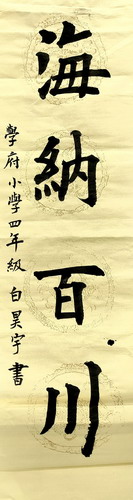 海納百川
學府小學四年級白昊宇書